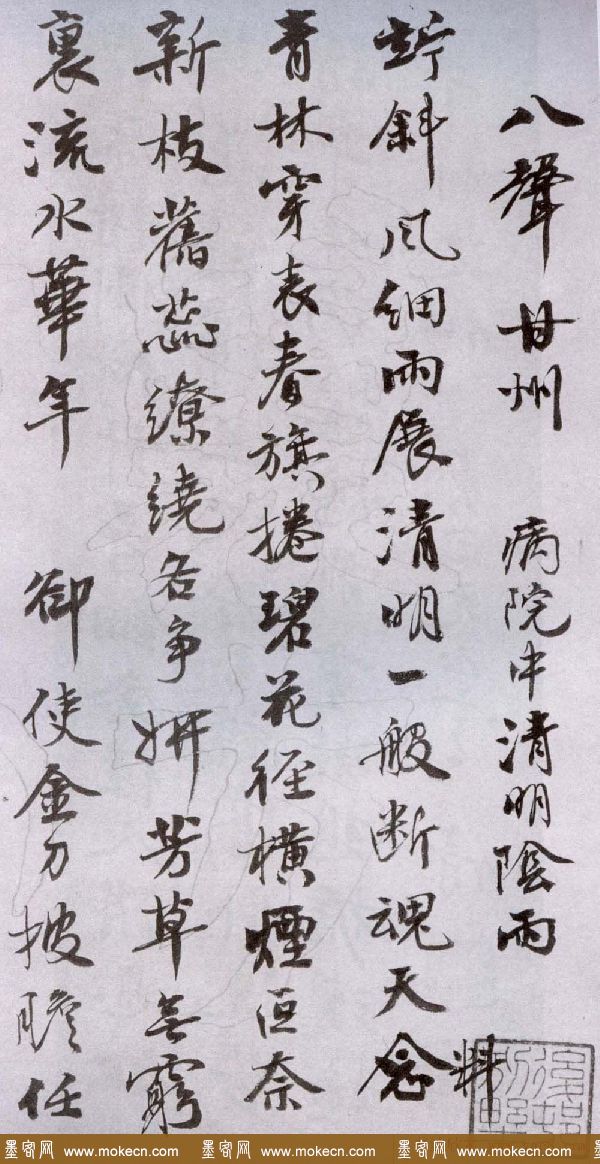 八聲甘州 病院中清明陰雨
斜風细雨展清明一般断魂天念
料
青林穿表春旗捲碧花徑橫煙叵奈
新枝舊蕊繚繞各争妍芳草無窮
裏流水華年 御使金刀披膽任
墨客网 www.mokecn.com 墨客网 www.mokecn.com 墨客网 www.mokecn.com